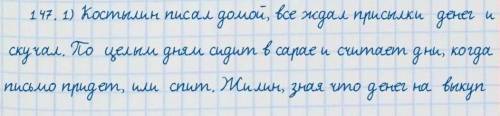 147. 1) Костылин писал домой, все ждал присылки денег и
скучал. По целым дням сидит в сарае и считает дни, когда
письмо придет, или спит. Жилин, зная что денег на выкуп